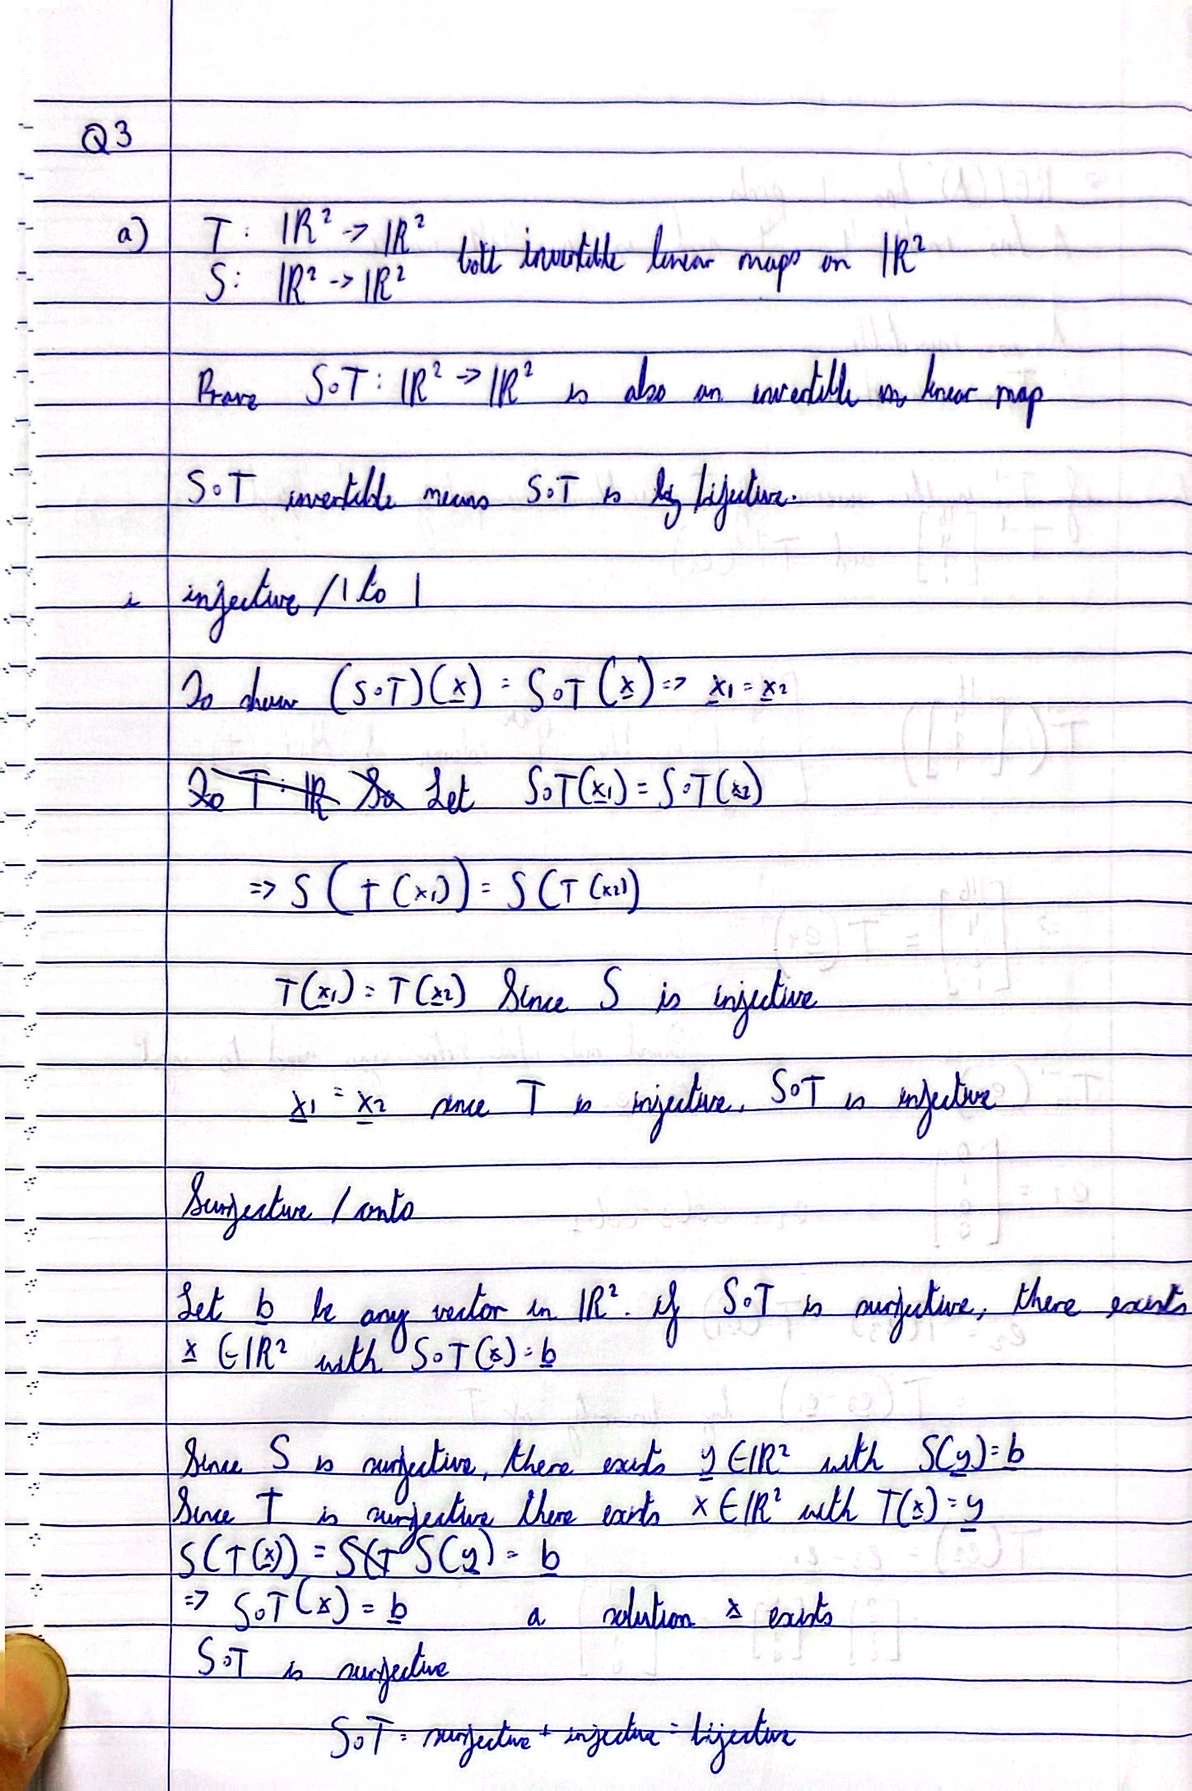 Q3
a) T: ℝ² → ℝ²
S: ℝ² → ℝ² both invertible linear maps on ℝ²
Prove S∘T: ℝ² → ℝ² is also an invertible linear map
S∘T invertible means S∘T is bijective.
i injective / 1 to 1
To show (S∘T)(x) = S∘T(x) => x1 = x2
Let S∘T(x1) = S∘T(x2)
=> S(T(x1)) = S(T(x2))
T(x1) = T(x2) Since S is injective
x1 = x2 since T is injective. S∘T is injective
Surjective / onto
Let b be any vector in ℝ². if S∘T is surjective, there exists
x ∈ ℝ² with S∘T(x) = b
Since S is surjective, there exists y ∈ ℝ² with S(y) = b
Since T is surjective there exists x ∈ ℝ² with T(x) = y
S(T(x)) = S(y) = b
=> S∘T(x) = b a solution x exists
S∘T is surjective
S∘T = surjective + injective = bijective